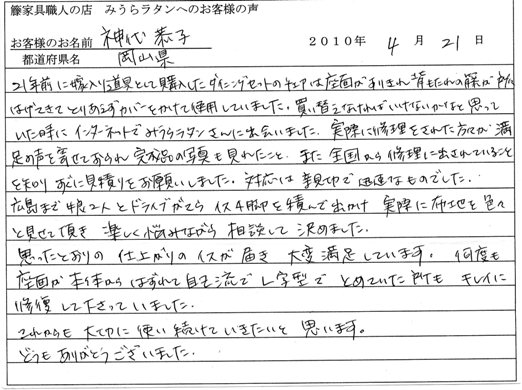 籐家具職人の店　みうらラタンへのお客様の声
お客様のお名前　神代 恭子　2010年　4月　21日
都道府県名　岡山県
21年前に嫁入り道具として購入したダイニングセットのチェアは座面がすりきれ 背もたれの籐が所々
はげてきてとりあえずカバーをかけて使用していました。買い替えなければいけないかなと思って
いた時に インターネットでみうらラタンさんに出会いました。実際に修理をされた方々が満
足の声を寄せておられ 完成品の写真も見れたこと、また 全国から修理に出されていること
を知り すぐに見積りをお願いしました。対応は親切で迅速なものでした。
広島まで娘2人とドライブがてら イス4脚を積んで出かけ 実際に布地を色々
と見せて頂き 楽しく悩みながら 相談して決めました。
思ったとおりの仕上がりのイスが届き 大変満足しています。何度も
座面が本体からはずれて自己流でL字型でとめていた所も キレイに
修復して下さっていました。
これからも大切に使い続けていきたいと思います。
どうもありがとうございました。